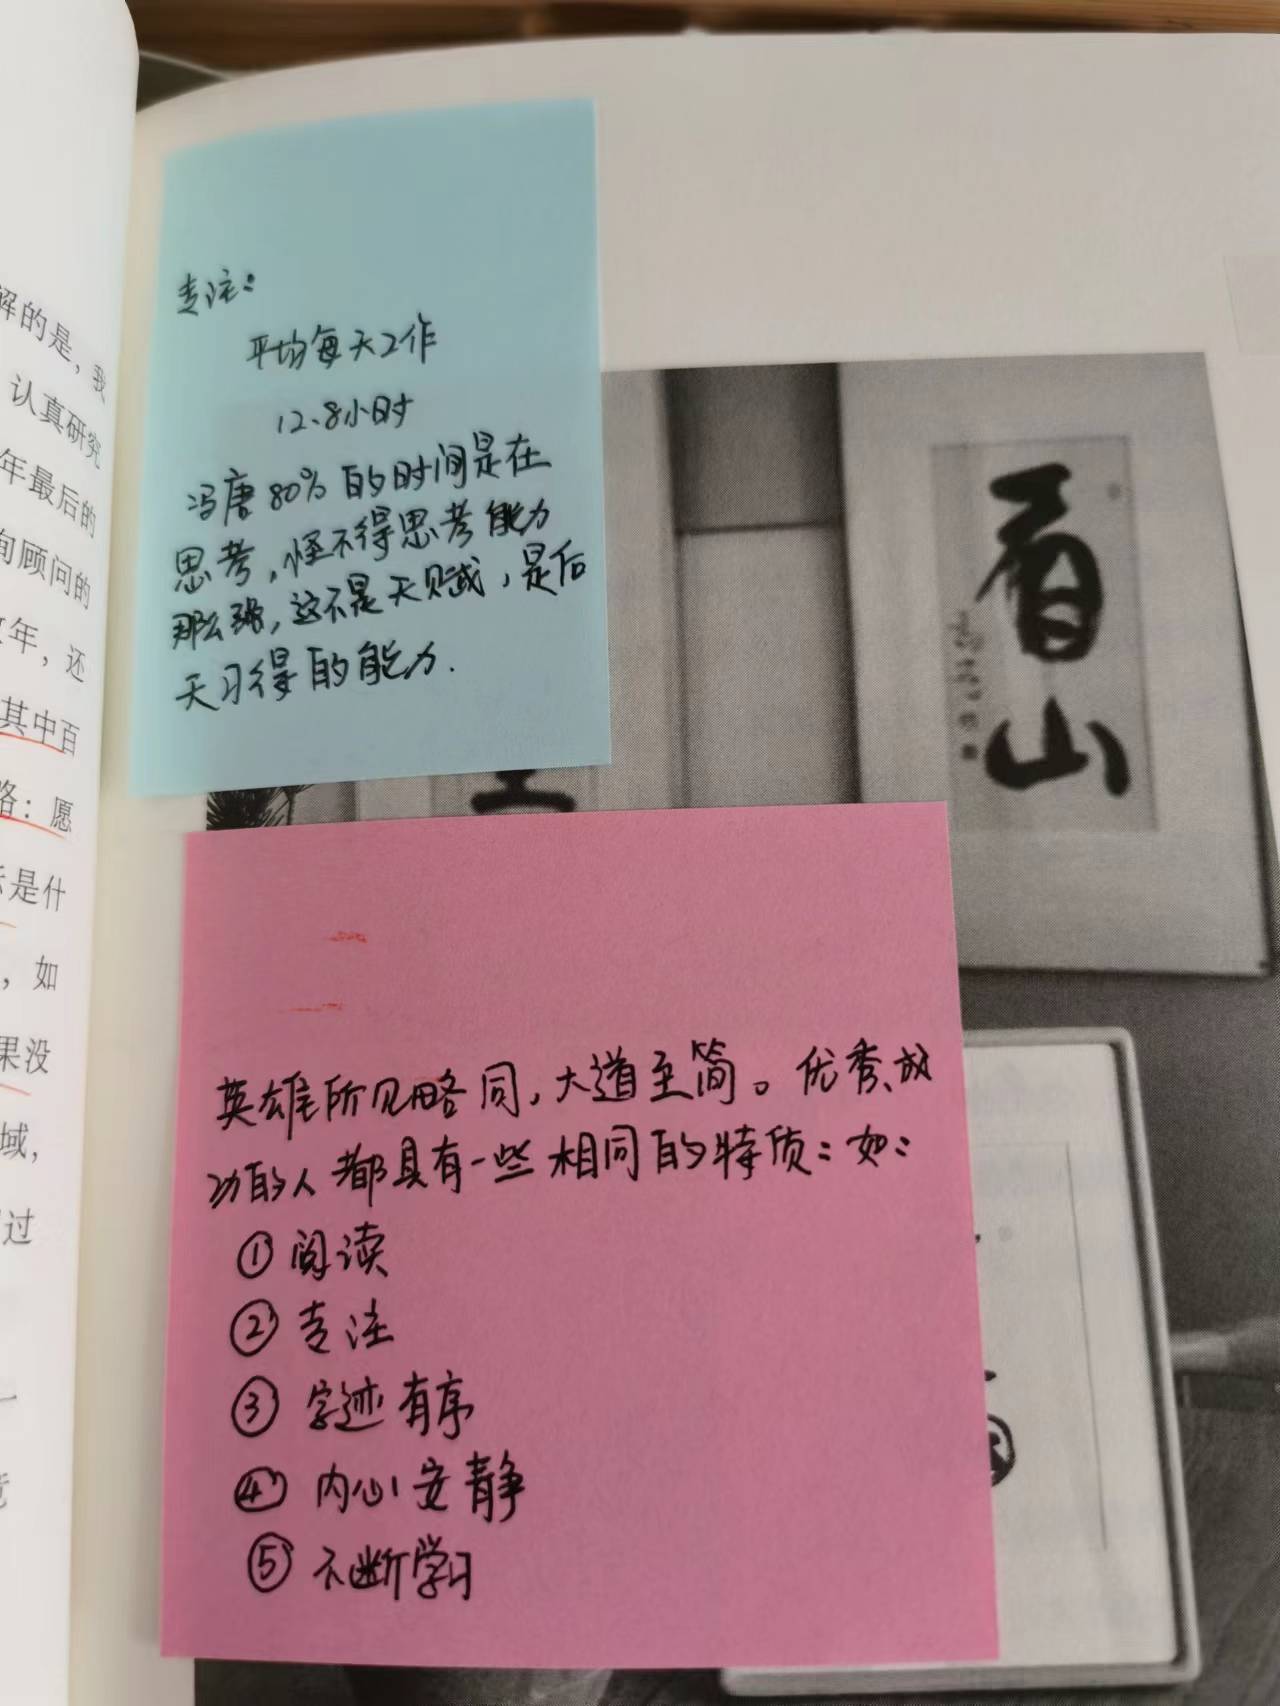 解的是，我
认真研究
年最后的
询顾问的
年，还
其中百
略：愿
是什
，如
果没
域，
过
专注：
平均每天工作
12.8小时
冯唐80%的时间是在
思考，怪不得思考能力
那么强，这不是天赋，是后
天习得的能力.
看
山
英雄所见略同，大道至简。优秀、成
功的人都具有一些相同的特质：如：
①阅读
②专注
③字迹有序
④内心安静
⑤不断学习